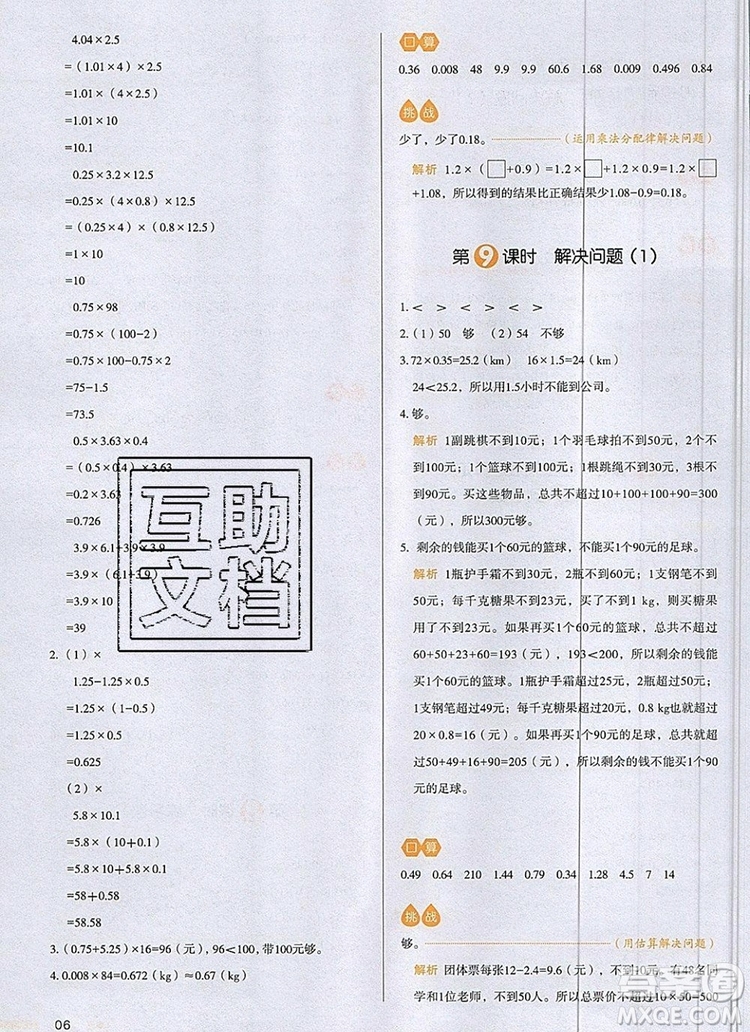 4.04×2.5
=（1.01×4）×2.5
=1.01×（4×2.5）
=1.01×10
=10.1
0.25×3.2×0.25
=0.25×（4×0.8）×12.5
=（0.25×4）×（0.8×12.5）
=1×10
=10
0.75×98
=0.75×（100-2）
=0.75×100-0.75×2
=75-1.5
=73.5
0.5×3.63×0.4
=（0.5×0.4）×3.63
=0.2×3.63
=0.726
3.9×6.1+3.9×3.9
=3.9×（6.1+3.9）
=3.9×10
=39
2.（1）×
1.25-1.25×0.5
=1.25×（1-0.5）
=1.25×0.5
=0.625
（2）×
5.8×10.1
=5.8×（10+0.1）
=5.8×10+5.8×0.1
=58+0.58
=58.58
3.（0.75+5.25）×16=96（元），96＜100，带100元够。
4.0.008×84=0.672（kg）≈0.67（kg）
06
口算
0.36 0.008 48 9.9 9.9 60.6 1.68 0.009 0.496 0.84
挑战
少了，少了0.18。（运用乘法分配律解决问题）
解析 1.2×（□+0.9）=1.2×□+1.2×0.9=1.2×□
+1.08，所以得到的结果比正确结果少1.08-0.9=0.18。
第9课时 解决问题（1）
1.＜ ＞ ＞ ＞ ＜ ＞
2.（1）50 够 （2）54 不够
3.72×0.35=25.2（km） 16×1.5=24（km）
24＜25.2，所以用1.5小时不能到公司。
4.够。
解析 1副跳棋不到10元；1个羽毛球拍不到50元，2个不
到100元；1个篮球不到100元；1根跳绳不到30元，3根
不到90元。买这些物品，总共不到10+100+100+90=300
（元），所以300元够。
5. 剩余的钱能买1个60元的篮球，不能买1个90元的足球。
解析 1瓶护手霜不到30元，2瓶不到60元；1支钢笔不到
50元；每千克糖果不到23元，买了不到1 kg，所以糖果
不到23元。如果再买1个60元的篮球，那么总共不到
60+50+23+60=193（元），193＜200，所以剩余的钱能
买1个60元的篮球。1瓶护手霜超过25元，2瓶超过50元；
1支钢笔超过49元；每千克糖果超过20元，0.8 kg超过
20×0.8=16（元）。如果再买1个90元的足球，那么总共
超过50+49+16+90=205（元），所以剩余的钱不能买1个90
元的足球。
口算
0.49 0.64 210 1.44 0.79 0.34 1.28 4.5 7 14
挑战
够。（用估算解决问题）
解析 团体票每张12-2.4=9.6（元），不到10元。有48名同
学和1位老师，不到50人。所以总票价不到10×50=500
互助
文档
答案圈
MXQE.COM